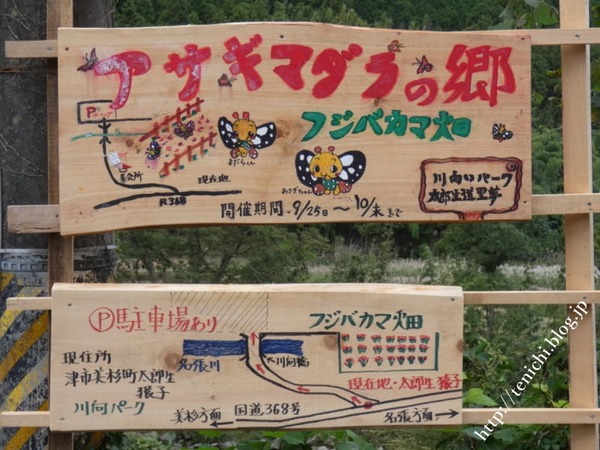 アサギマダラの郷
フジバカマ畑
P
集会所
現在地
R368
まだらくん
あさぎちゃん
川向いパーク
太郎生道里夢
開催期間.9/25日～10/末まで
Ⓟ駐車場あり
フジバカマ畑
現住所
津市美杉町太郎生
猿子
川向パーク
名張川
川向橋
現在地・太郎生 猿子
美杉方面
国道368号
名張方面
http://tenichi.jp.blog.jp